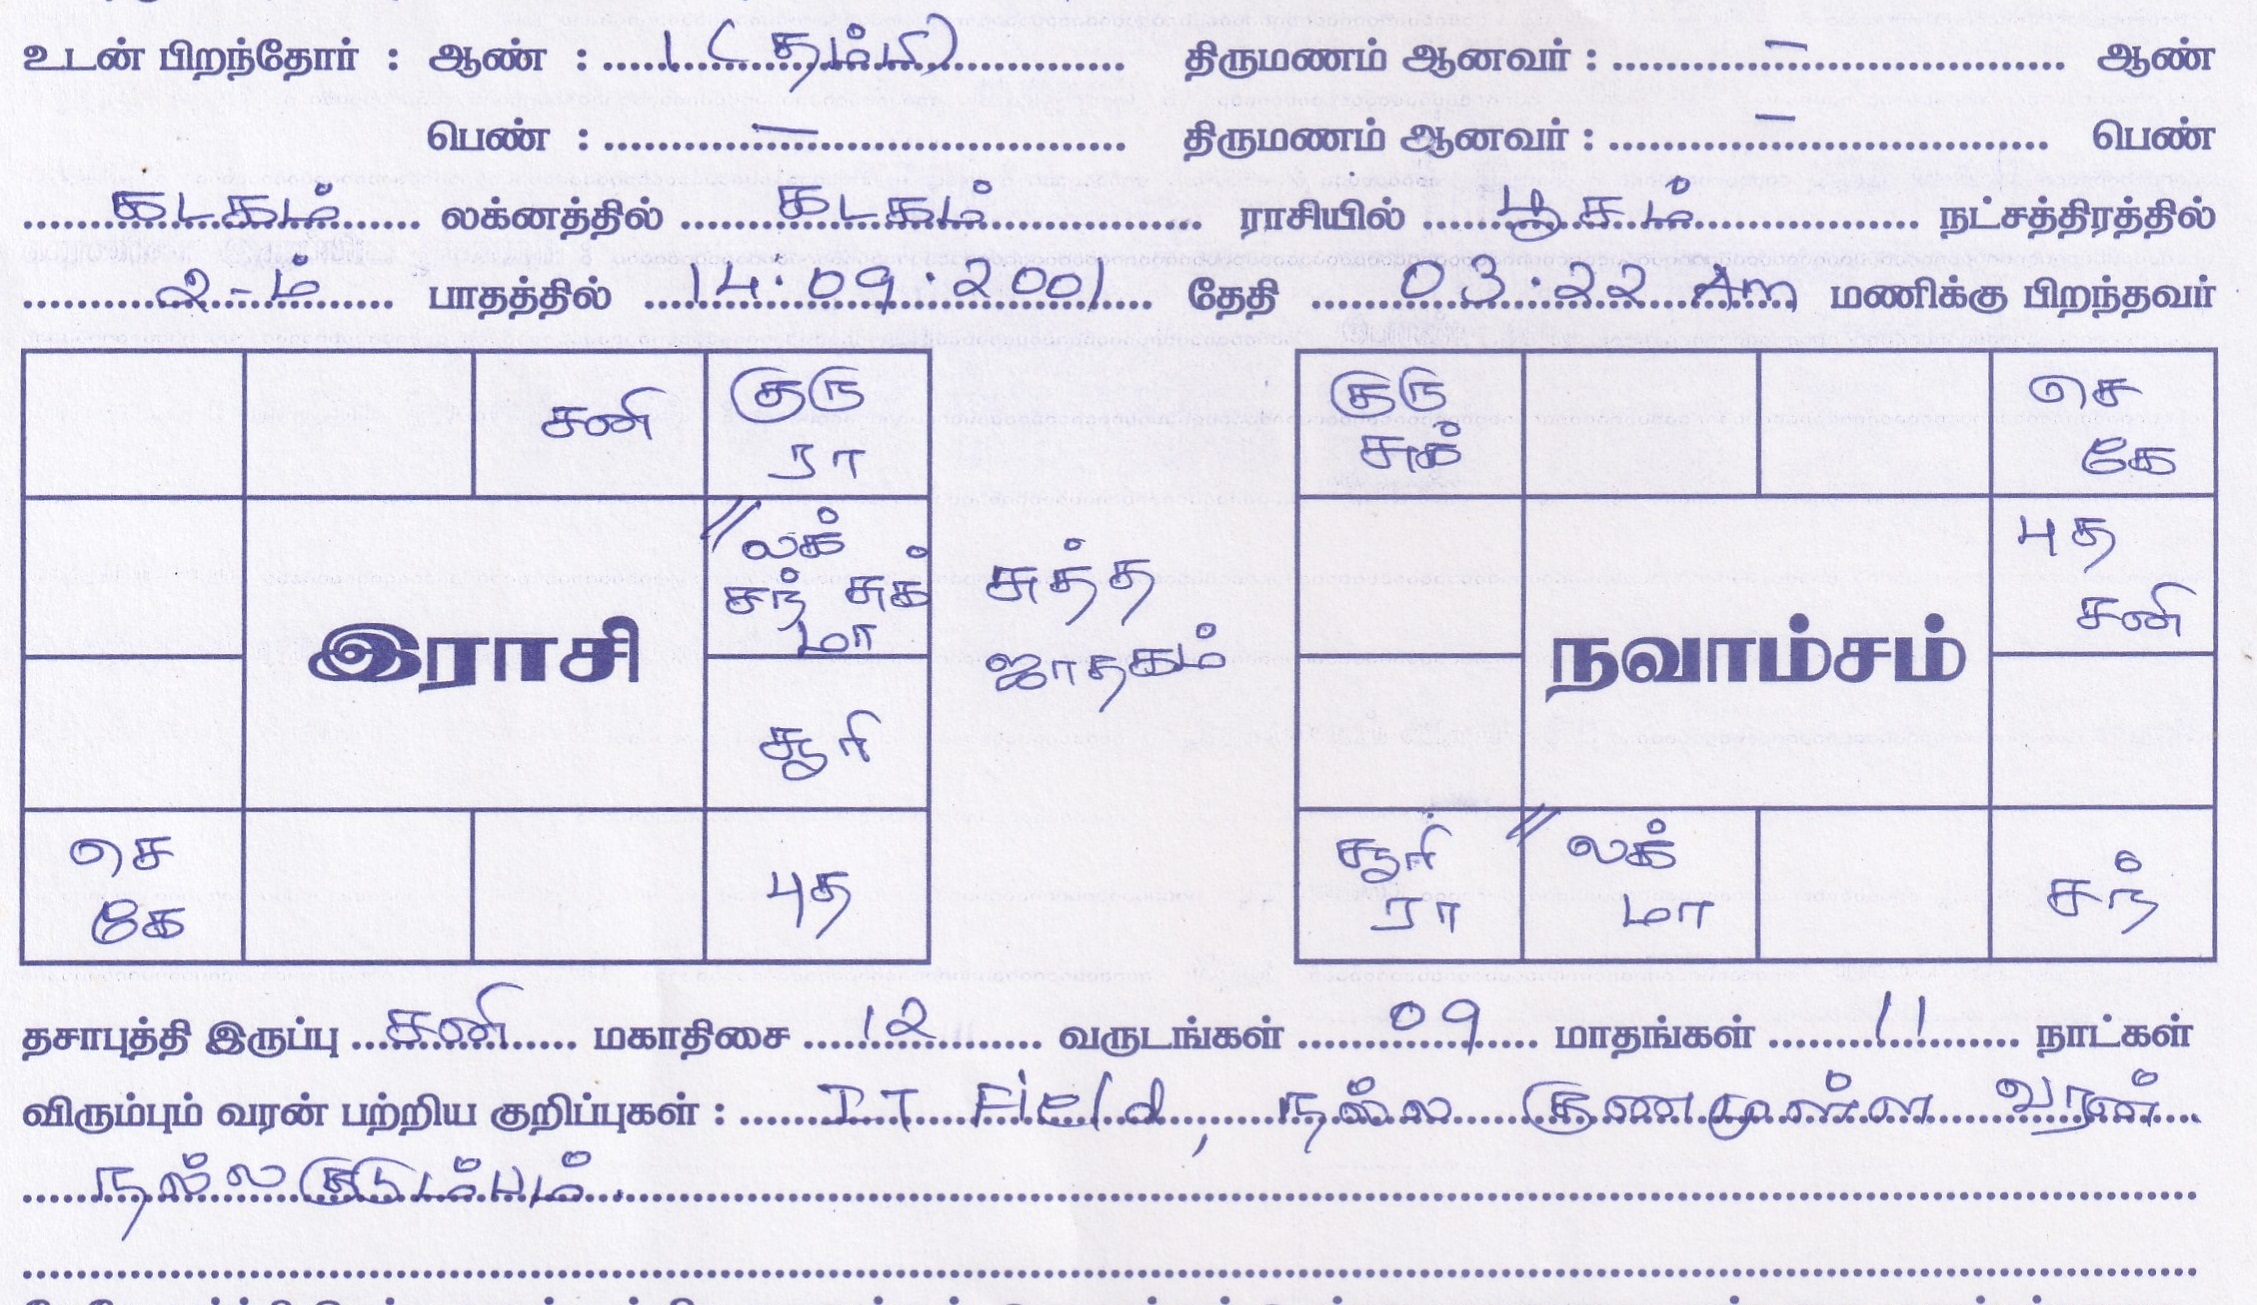 உடன் பிறந்தோர் : ஆண் : 1 (தம்பி) திருமணம் ஆனவர் : – ஆண்
பெண் : – திருமணம் ஆனவர் : – பெண்
கடகம் லக்னத்தில் கடகம் ராசியில் பூசம் நட்சத்திரத்தில்
2-ம் பாதத்தில் 14.09.2001 தேதி 03.22 Am மணிக்கு பிறந்தவர்
சனி
குரு
ரா
லக்
சந் சுக்
மா
இராசி
சூரி
செ
கே
புத
சுத்த
ஜாதகம்
குரு
சுக்
செ
கே
புத
சனி
நவாம்சம்
சூரி
ரா
லக்
மா
சந்
தசாபுத்தி இருப்பு சனி மகாதிசை 12 வருடங்கள் 09 மாதங்கள் 11 நாட்கள்
விரும்பும் வரன் பற்றிய குறிப்புகள் : IT Field, நல்ல குணமுள்ள வரன்
நல்ல குடும்பம்.